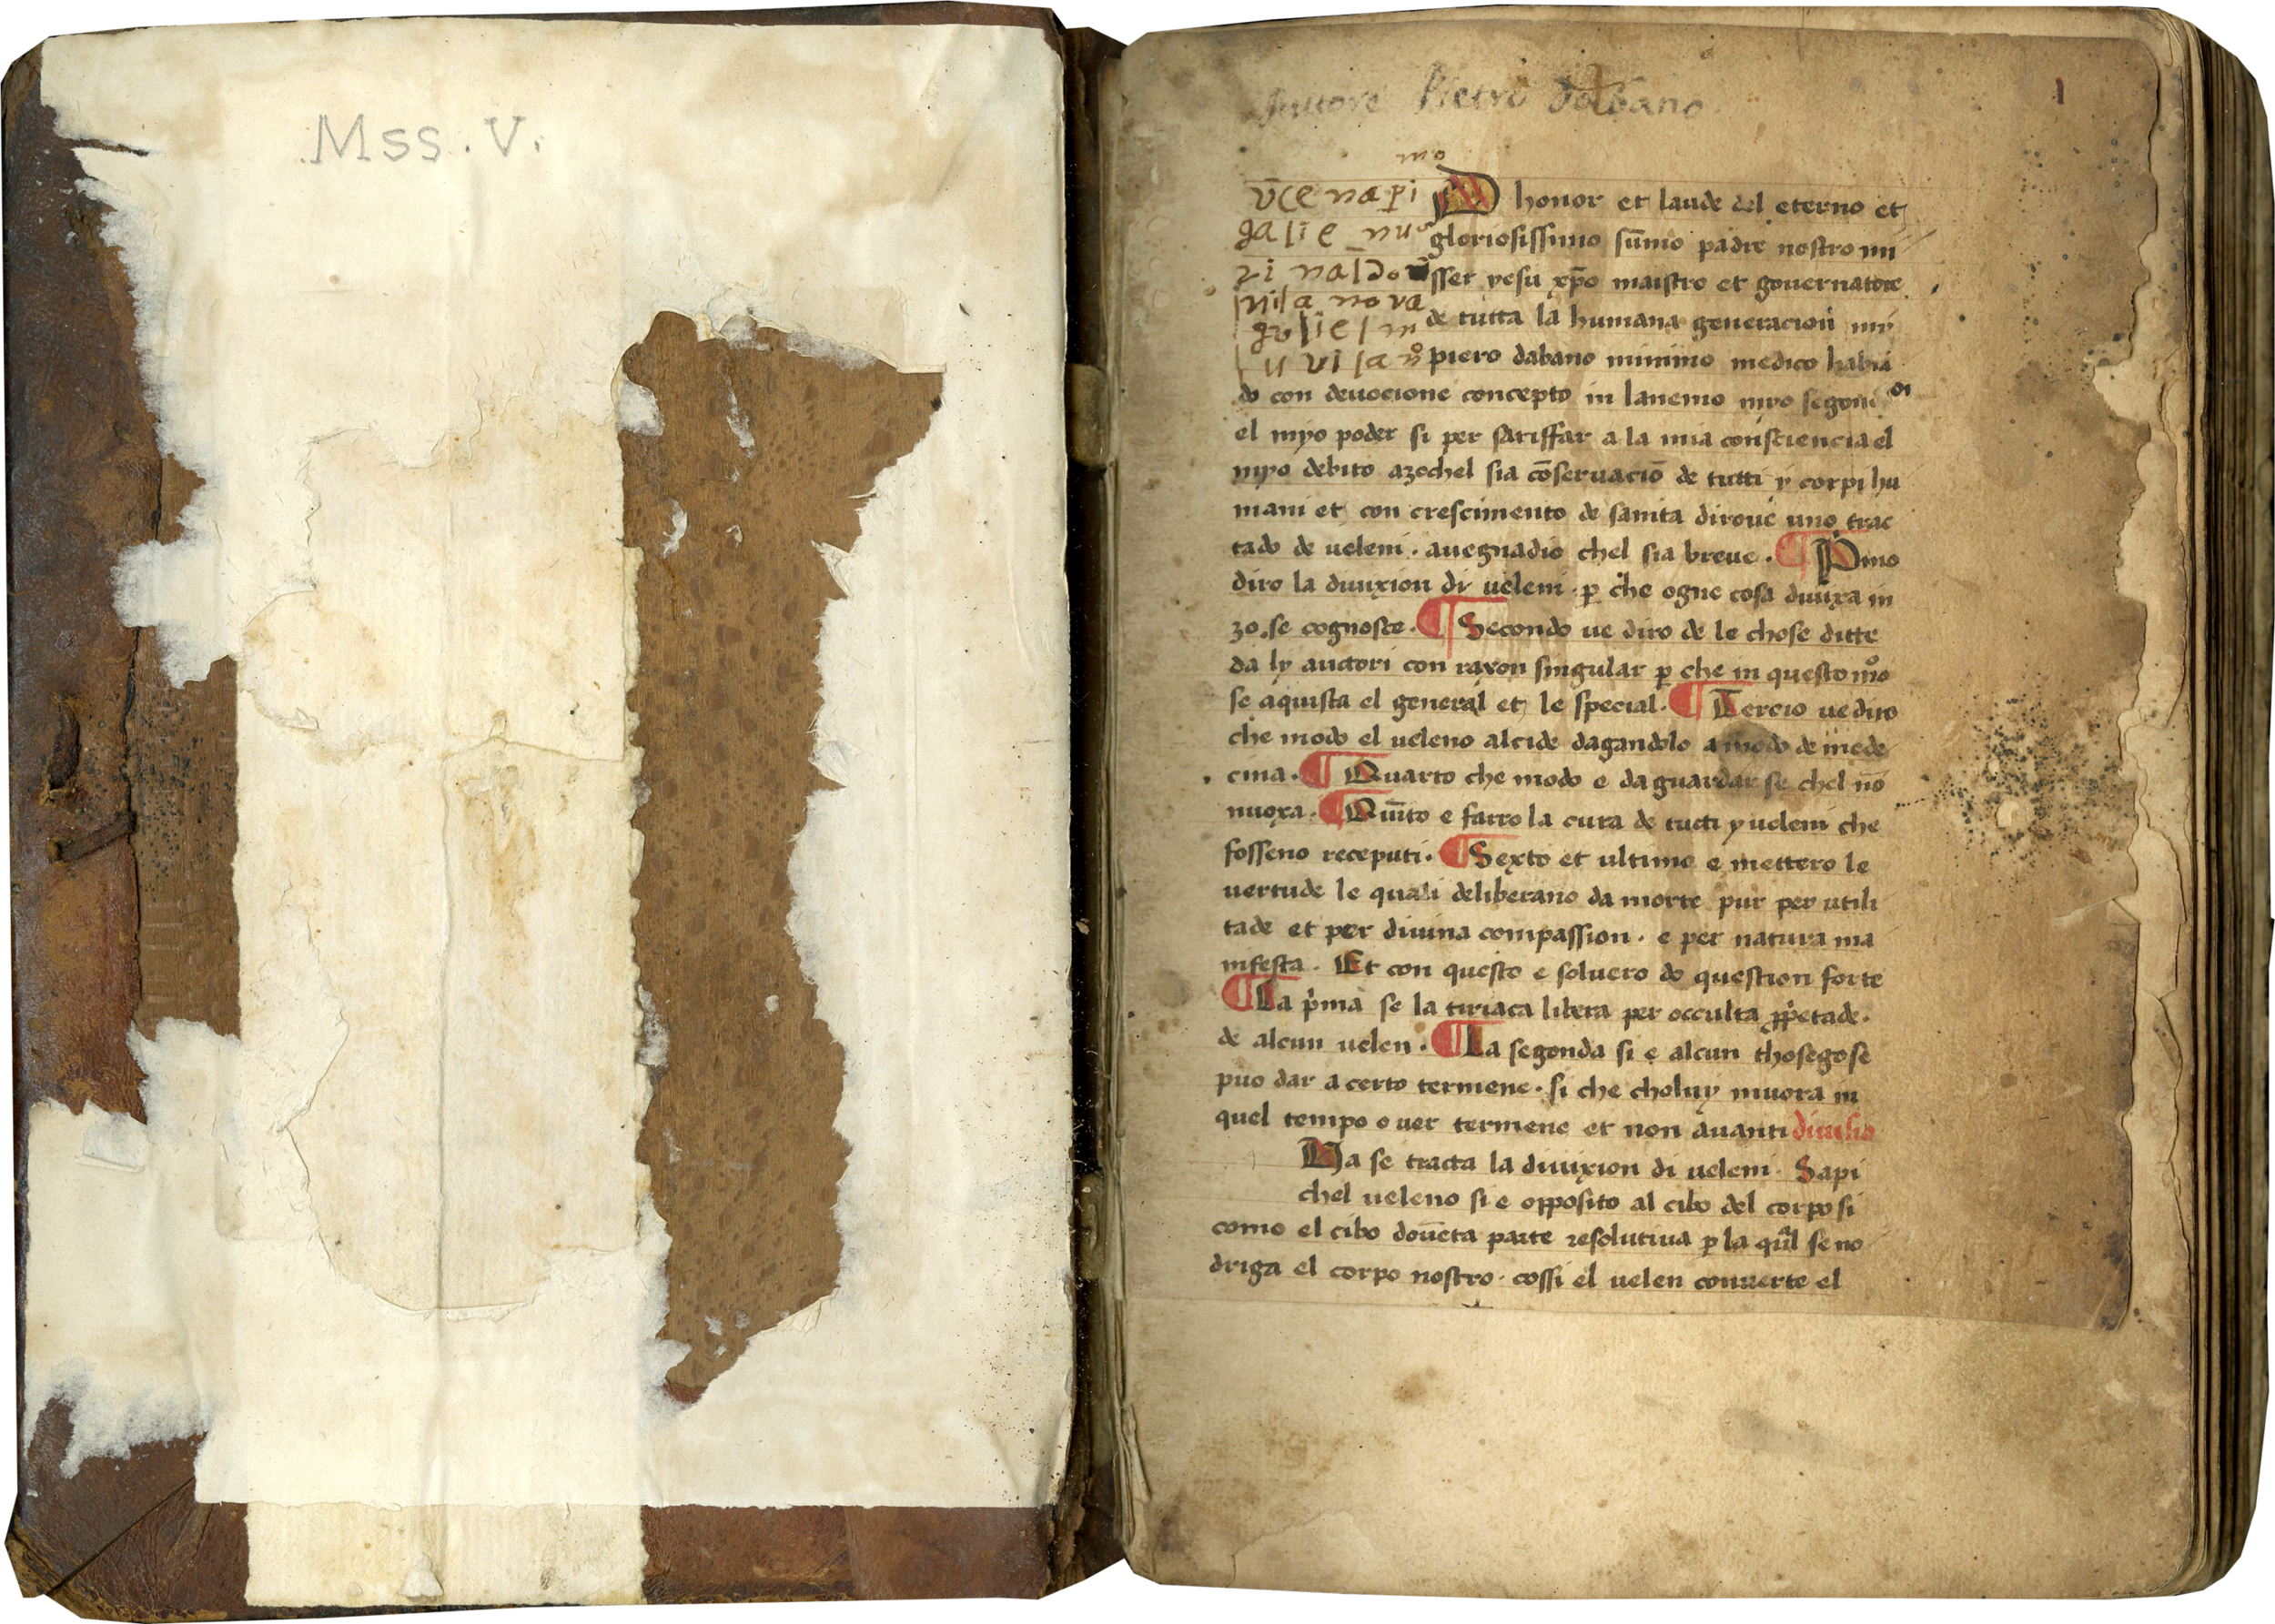 Mss. V.
Auttore Pietro Dabano
1
mo
v̄ce na pi
galie_nus
ri naldo
vila nova
gulielm
u vila n̊
AD honor et laude del eterno et
gloriosissimo sūmo padre nostro mi
sser yesu xp̄o maistro et governatore
de tutta la humana generacion my
piero dabano minimo medico habia
do con devocione concepto in lanemo myo segondi
el myo poder si per satisffar a la mia consciencia el
myo debito azochel sia cōservaciō de tutti y corpi hu
mani et con crescimento de sanita dirove uno trac
tado de veleni. avegnadio chel sia breve. ¶ Pmo
diro la divixion di veleni. ꝑ che ogne cosa divixa in
zo. se cognosce. ¶ Secondo ve diro de le chose ditte
da ly auctori con raxon singular ꝑ che in questo mo̊
se aquista el general et le special. ¶ Tercio ve diro
che modo el veleno alcide dagandolo a modo de mede
cina. ¶ Quarto che modo e da guardar se chel nō
nuoxa. ¶ Quīto e farro la cura de tucti y veleni che
fosseno receputi. ¶ Sexto et ultimo e mettero le
vertude le quali deliberano da morte pur per utili
tade et per divina compassion. e per natura ma
nifesta. Et con questo e solvero do question forte
¶ La p̍ma se la tiriaca libera per occulta ꝓp̍etade.
de alcun velen. ¶ La segonda si e alcun thosego se
puo dar a certo termene. si che choluy muora in
quel tempo o ver termene et non avanti divisio
Qa se tracta la divixion di veleni. Sapi
chel veleno si e opposito al cibo del corpo si
como el cibo dovēta parte resolutiva ꝑ la qual se no
driga el corpo nostro. cossi el velen converte el